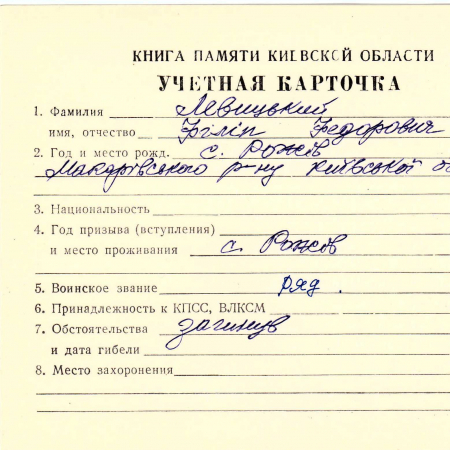 КНИГА ПАМЯТИ КИЕВСКОЙ ОБЛАСТИ
УЧЕТНАЯ КАРТОЧКА
1. Фамилия Левицький
имя, отчество Філіп Федорович
2. Год и место рожд. с. Рожів
Макарівського р-ну Київської об
3. Национальность
4. Год призыва (вступления)
и место проживания с. Рожів
5. Воинское звание ряд.
6. Принадлежность к КПСС, ВЛКСМ
7. Обстоятельства загинув
и дата гибели
8. Место захоронения